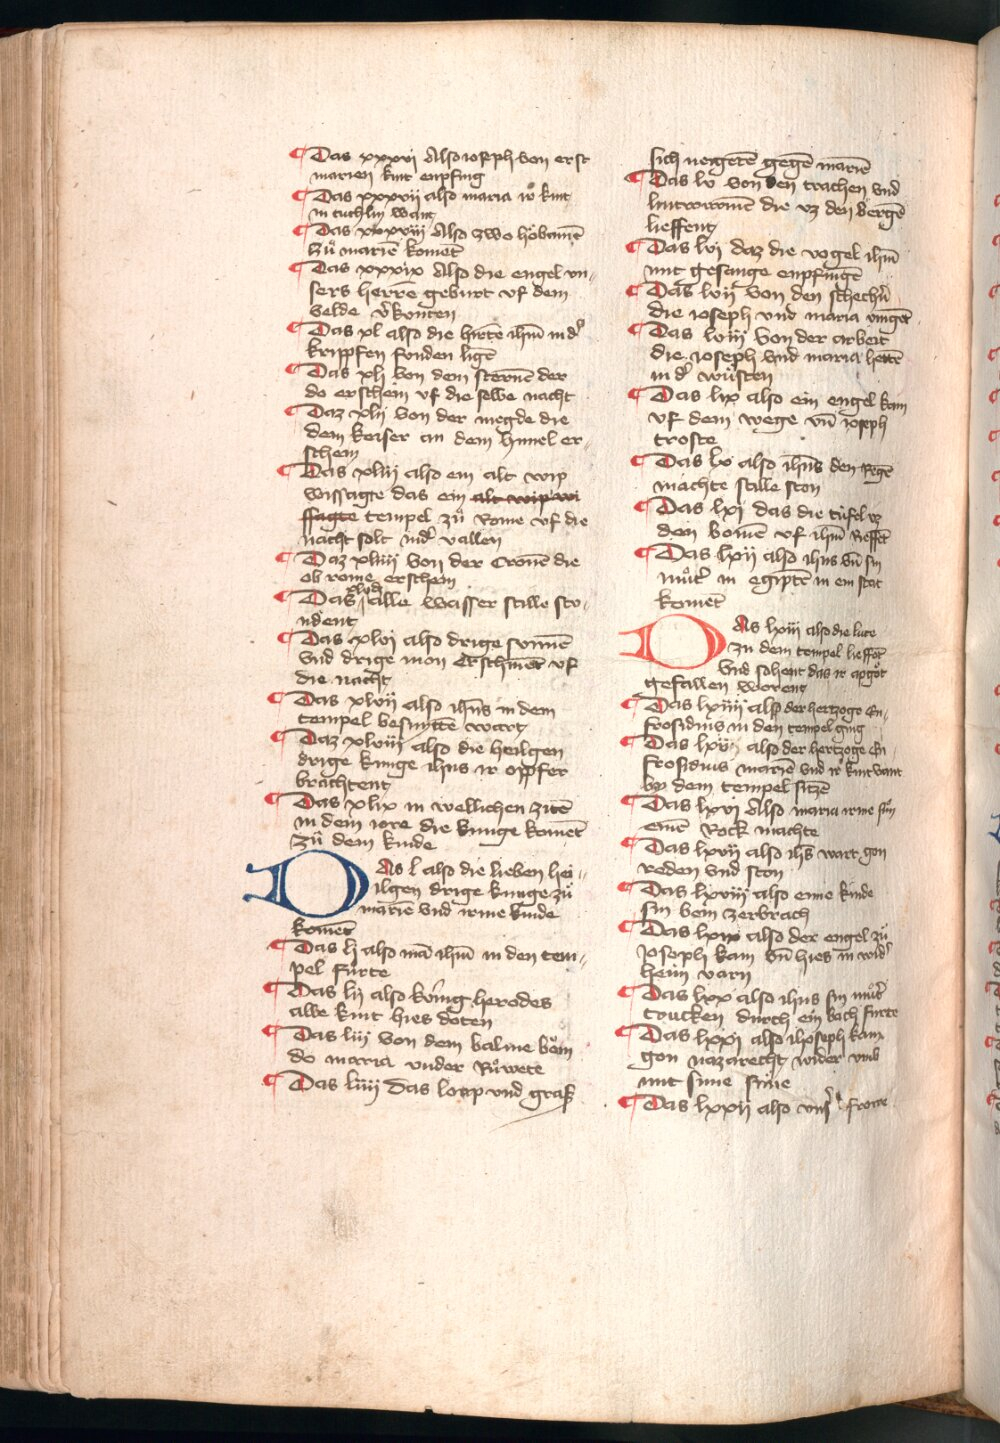 Das xxxvi Also ioseph von erst
marien kint enpfing
Das xxxvii also maria ir kint
in tuchlin want
Das xxxviii Also zwo hebamē
zů mariē komēt
Das xxxix Also die engel vn-
sers herrē geburt vf dem
velde v'konten
Das xl also die hirtē ihm̄ in d'
krippfen fonden ligē
Das xli von dem sternē der
do erschein vf die selbe nacht
Daz xlii von der megde die
dem keiser an dem himel er-
schein
Das xliii also ein alt wip
wissagte das ein alt wip wi
ssagte tempel zů Rome vf die
nacht solt nid' vallen
Daz xliiii von der Cronē die
ob rome erschein
Das xlv alle wasser stille sto-
ndent
Das xlvi also drige sunnē
vnd drige mon Erschinēt vf
die nacht
Das xlvii also ihūs in dem
tempel besnittē wart
Daz xlviii also die heilgen
drige kunige ihūs ir oppfer
brachtent
Das xlix in wellichen zitē
in dem iore die kunige komēt
zů dem kinde
Das l also die lieben hei-
ilgen drige kunige zů
mariē vnd irme kinde
komēt
Das li also mā ihm̄ in den tem-
pel fůrte
Das lii also kv́nig herodes
alle kint hies döten
Das liii von dem balme bŏm
do maria vnder Růwete
Das liiii Das loup vnd gras
sich neigetē gegē mariē
Das lv von den trachen vnd
lintwurmē die vz den bergē
lieffent
Das lvi daz die vogel ihm̄
mit gesange enpfingē
Das lvii von den schechn̄
die ioseph vnd maria vingēt
Das lviii von der arbeit
die ioseph vnd maria hettē
in d' wůsten
Das lix also ein engel kam
vf dem wege vn̄ ioseph
troste
Das lx also ihūs den Regē
machte stille ston
Das lxi das die tüfel vz
den bomē vf ihm̄ Reffēt
Das lxii also ihūs vn̄ sin
můt' in egiptē in ein stat
komēt
DAs lxiii also die lute
zu dem tempel lieffēt
vnd sohent das ir apgŏt
gefallen worent
Das lxiiii also der hertzoge En-
frosidius in den tempel ging
Das lxv also der hertzoge En
frosidius mariē vnd ir kint vant
by dem tempel sitzē
Das lxvi Also maria irme sůn
einē Rock machte
Das lxvii also ihs̄ wart gon
reden vnd ston
Das lxviii also eime kinde
sin bein zerbrach
Das lxix also der engel zů
Joseph kam vn̄ hies in wid'
heim varn
Das lxx also ihūs sin můt'
trucken durch ein bach furte
Das lxxi also ihs ioseph kam
gon nazarecht wider vmb
mit sime sůne
Das lxxii also vns' frowe